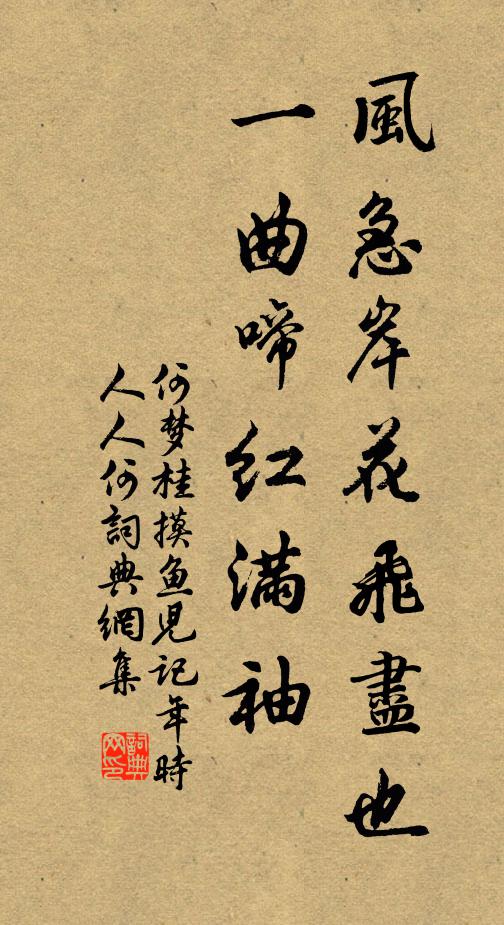 風急岸花飛盡也
一曲啼红滿袖
何梦桂摸魚児記年時
人人何詞典網集
詞典网印